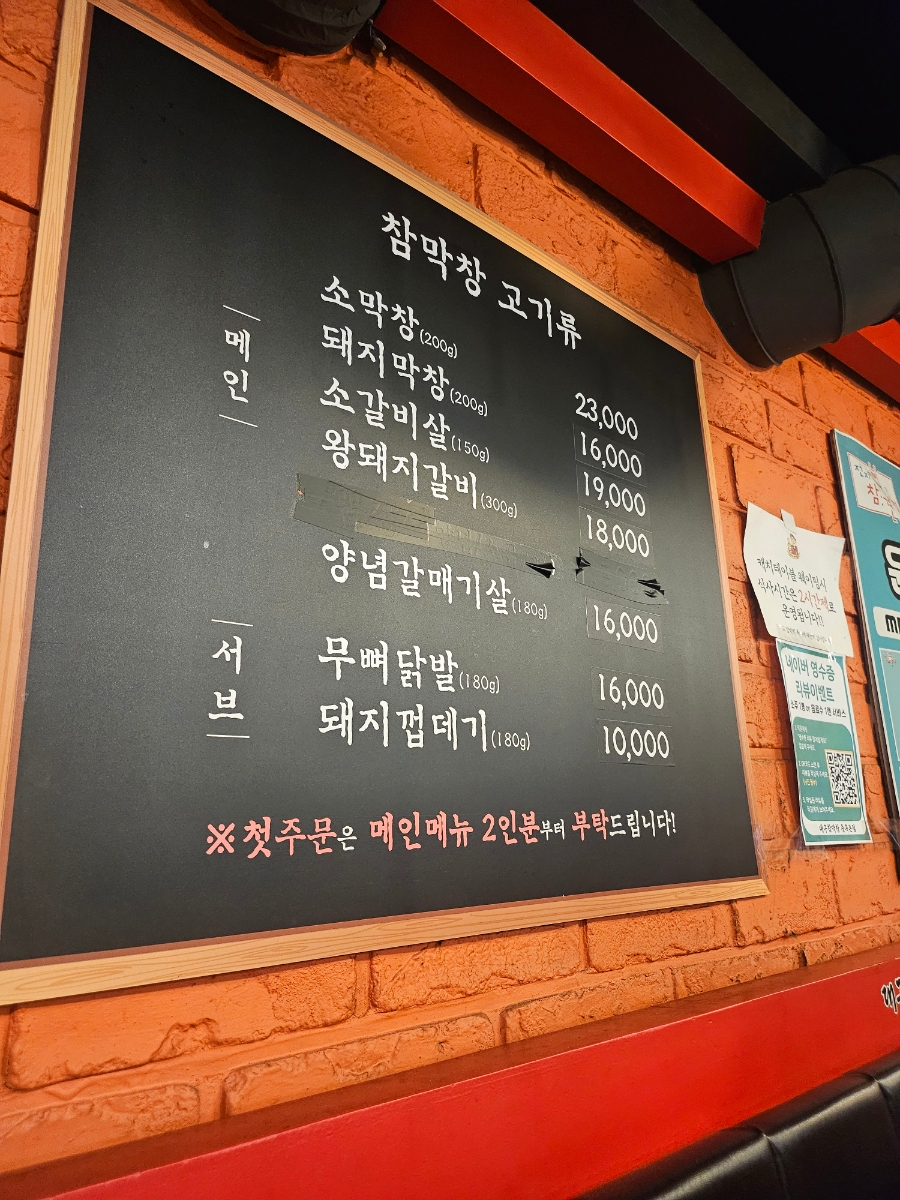 참막창 고기류
메인
소막창(200g) 23,000
돼지막창(200g) 16,000
소갈비살(150g) 19,000
왕돼지갈비(300g) 18,000
양념갈매기살(180g) 16,000
서브
무뼈닭발(180g) 16,000
돼지껍데기(180g) 10,000
※첫주문은 메인메뉴 2인분부터 부탁드립니다!
캐치테이블 웨이팅시
식사시간은 2시간제로
운영됩니다!!
네이버 영수증
리뷰이벤트